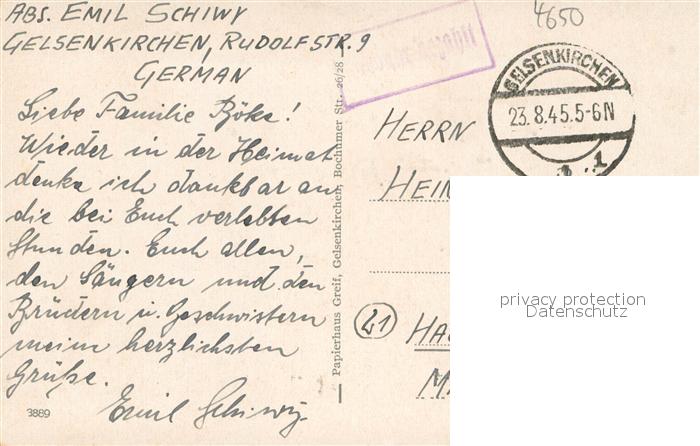 ABS. EMIL SCHIWY
GELSENKIRCHEN, RUDOLFSTR. 9
GERMAN
Liebe Familie Röke!
Wieder in der Heimat
denke ich dankbar an
die bei Euch verlebten
Stunden. Euch allen,
den Sängern und den
Brüdern u. Geschwistern
meine herzlichsten
Grüße.
Emil Schiwy.
3889
Papierhaus Greif, Gelsenkirchen, Bochumer Str. 26/28
4650
GELSENKIRCHEN
23.8.45.5-6N
1
HERRN
HEIN
21
HA
privacy protection
Datenschutz